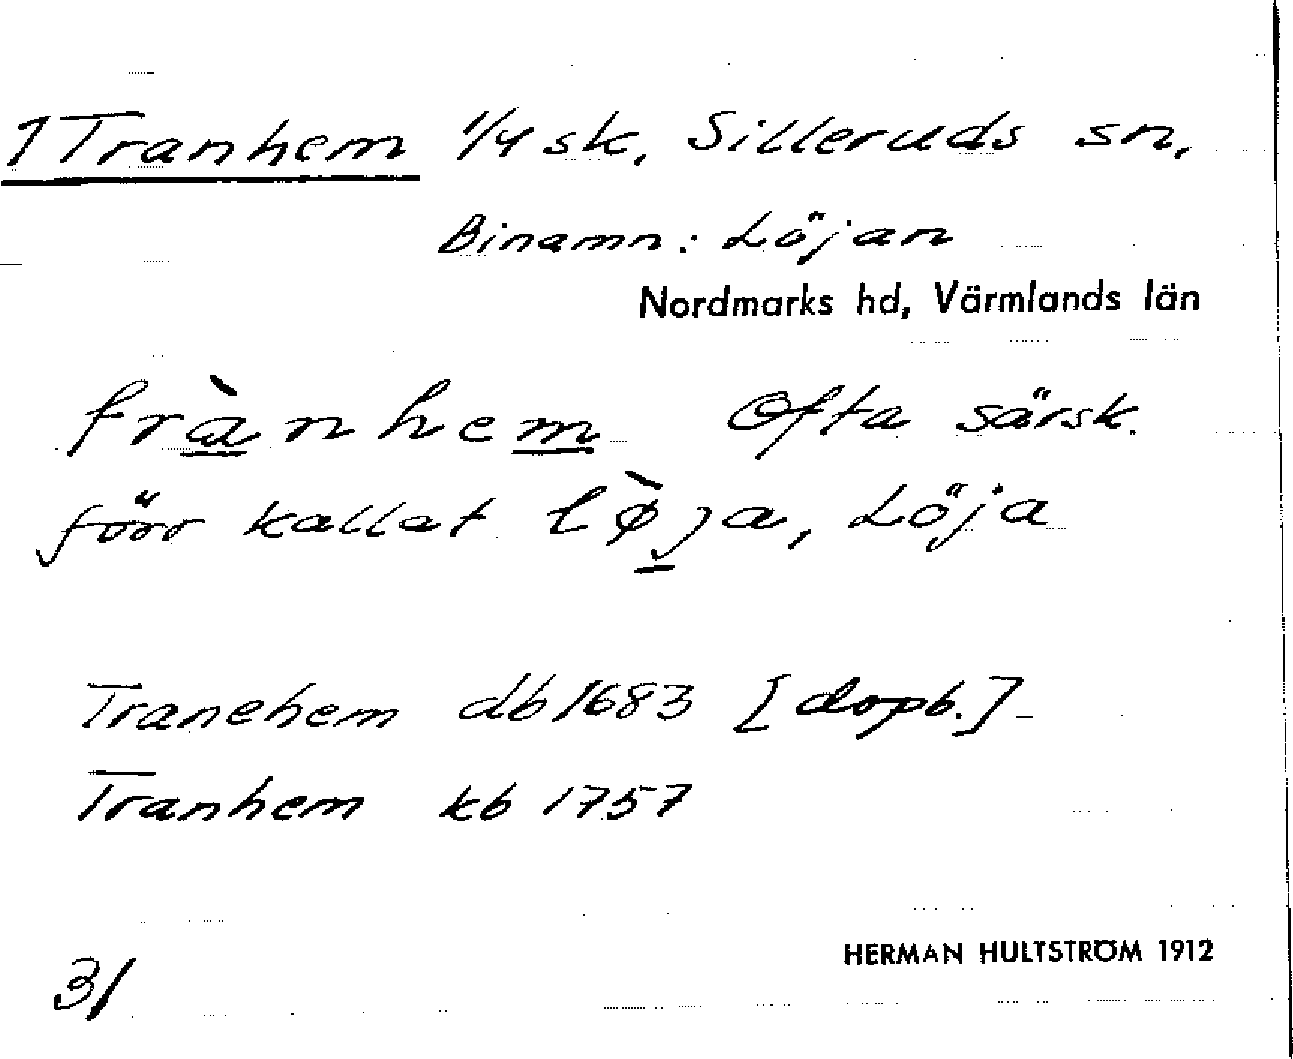 1 Tranhem 1/4 sk, Silleruds sn,
Binamn: Löjan
Nordmarks hd, Värmlands län
trànhem Ofta särsk.
förr kallat lø̀ja, Löja
Tranehem db 1683 [dopb.]
Tranhem kb 1757
HERMAN HULTSTRÖM 1912
31